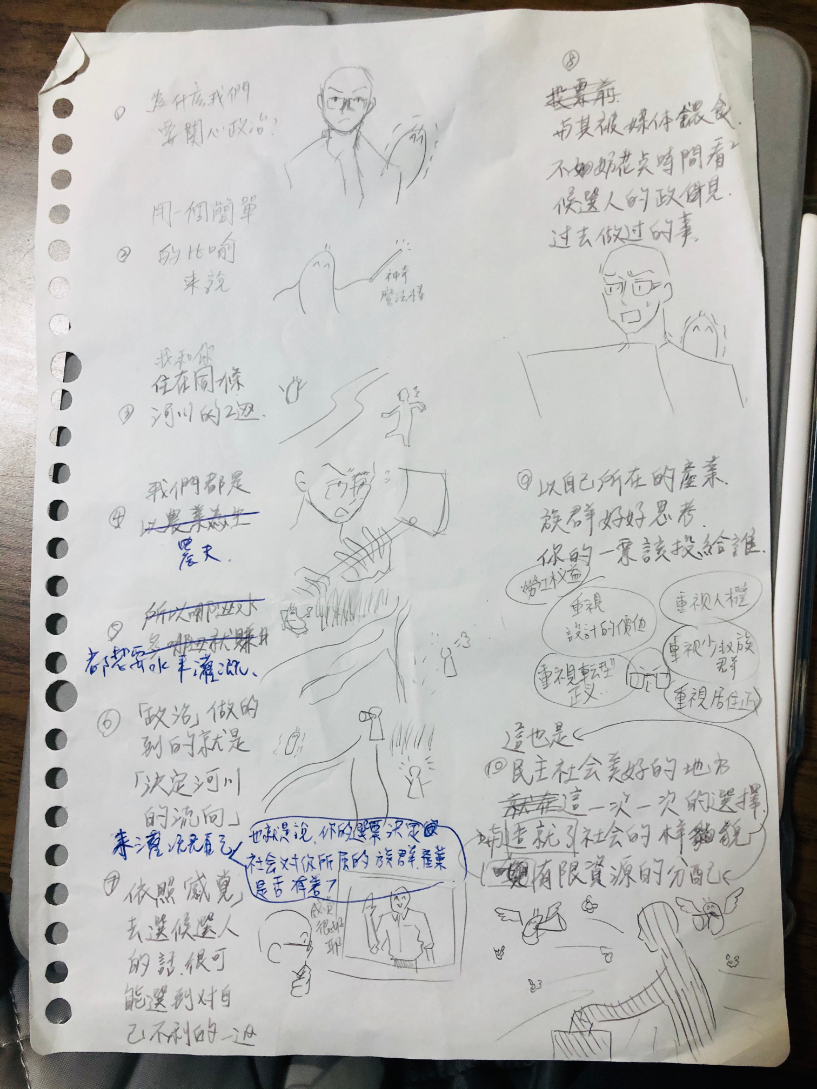 ①
為什麼我們
要關心政治?
②
用一個簡單
的比喻
來說
神奇
魔法棒
③
我和你
住在同一條
河川的2邊.
④
我們都是
以農業為生
農夫.
⑤
所以哪邊水
多哪邊就賺
都需要水來灌溉.
⑥
「政治」做的
到的就是
「決定河川
的流向」
來灌溉自己
也就是說,你的選票決定
社会对你所属的族群.產業
是否有善?
⑦
依照「感覺」
去選候選人
的話.很可
能選到对自
己不利的一边
感覺
很好
耶
⑧
投票前.
与其被媒体餵食.
不如好花点時間看
候選人的政見.
过去做过的事.
⑨
以自己所在的產業.
族群好好思考.
你的一票該投給誰.
勞工权益
重視
設計的價值
重視人權
重視少数族
群
重視轉型
正义..
重視居住正
這也是
⑩
民主社会美好的地方
就在這一次一次的選擇
造就了社会的样貌
有限資源的分配